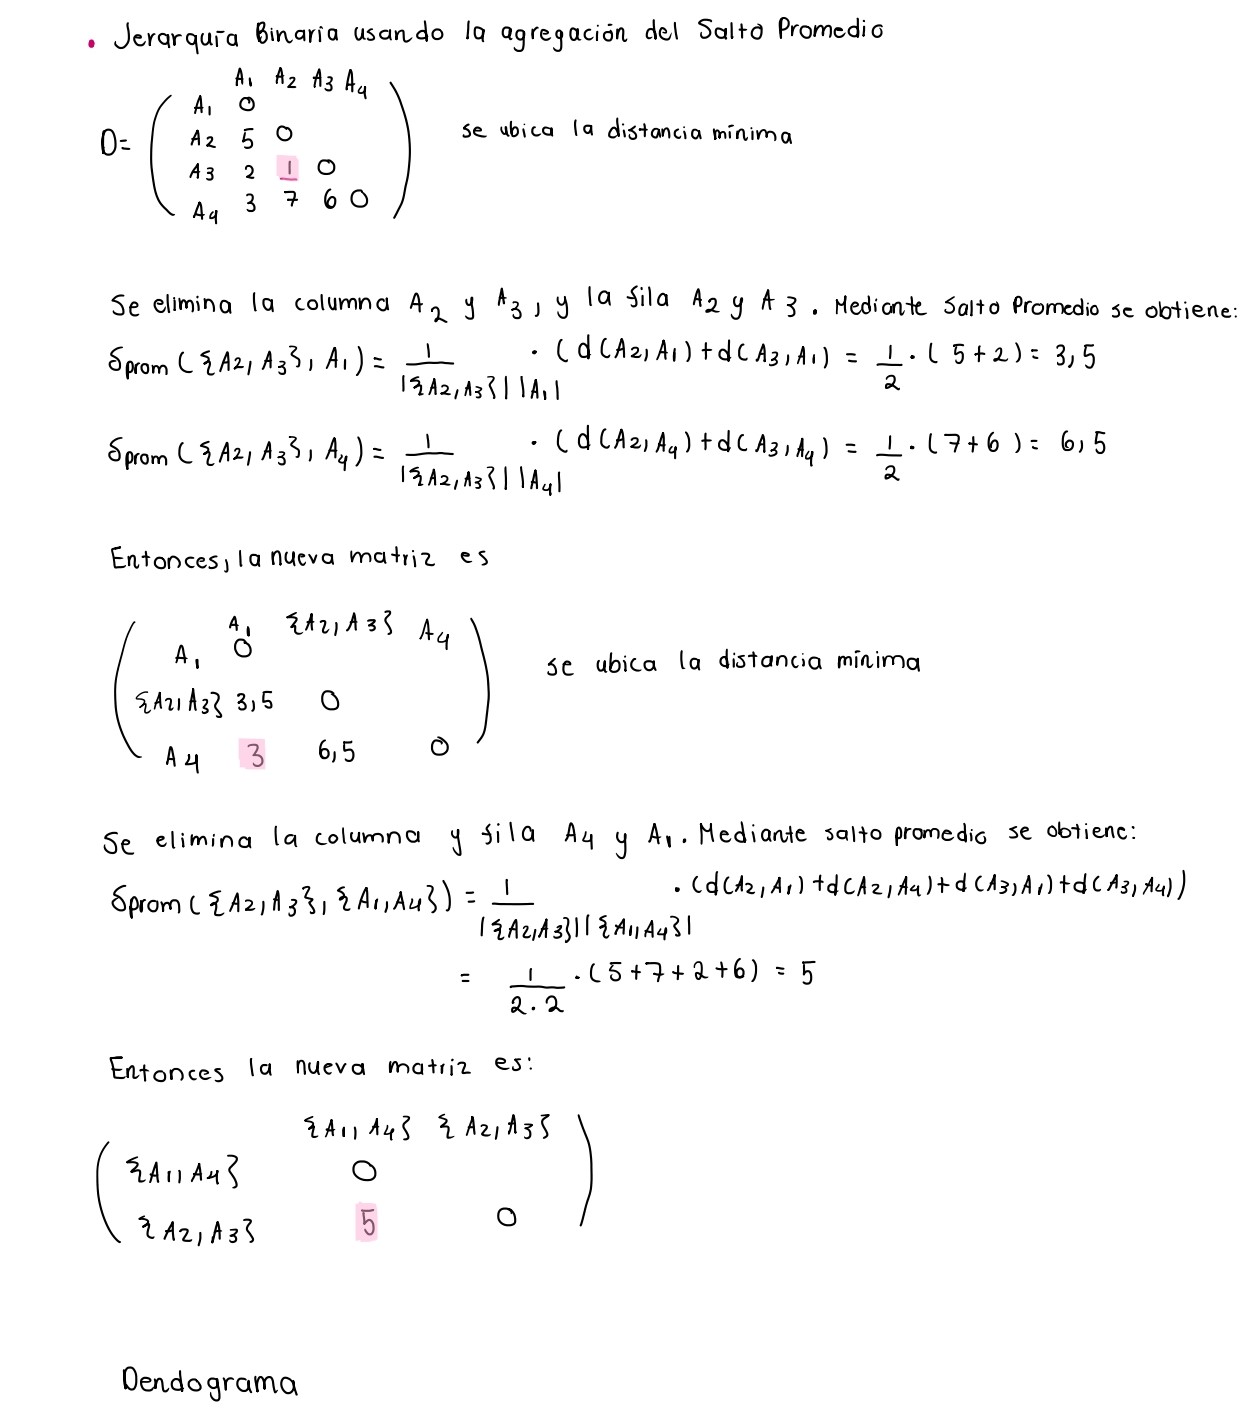 • Jerarquía Binaria usando la agregación del Salto Promedio
A1 A2 A3 A4
A1 0
D= A2 5 0 se ubica la distancia mínima
A3 2 1 0
A4 3 7 6 0
Se elimina la columna A2 y A3, y la fila A2 y A3. Mediante Salto Promedio se obtiene:
δprom ({A2, A3}, A1) = 1/|{A2, A3}||A1| · (d(A2, A1) + d(A3, A1) = 1/2 · (5+2) = 3,5
δprom ({A2, A3}, A4) = 1/|{A2, A3}||A4| · (d(A2, A4) + d(A3, A4) = 1/2 · (7+6) = 6,5
Entonces, la nueva matriz es
A1 {A2, A3} A4
A1 0
se ubica la distancia mínima
{A2, A3} 3,5 0
A4 3 6,5 0
Se elimina la columna y fila A4 y A1. Mediante salto promedio se obtiene:
δprom ({A2, A3}, {A1, A4}) = 1/|{A2, A3}||{A1, A4}| · (d(A2, A1) + d(A2, A4) + d(A3, A1) + d(A3, A4))
= 1/2·2 · (5+7+2+6) = 5
Entonces la nueva matriz es:
{A1, A4} {A2, A3}
{A1, A4} 0
{A2, A3} 5 0
Dendograma